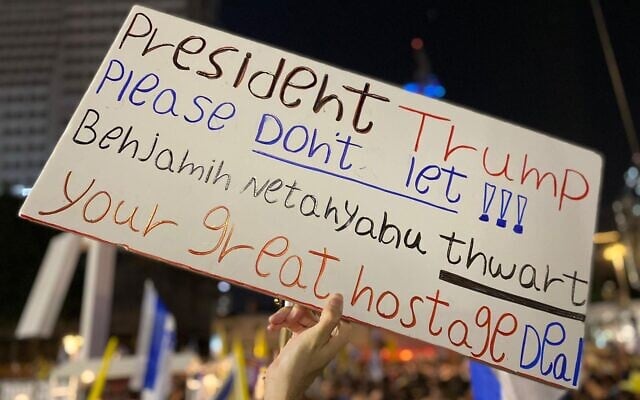 President Trump
Please Don't let !!!
Benjamin Netanyabu thwart
your great hostage Deal